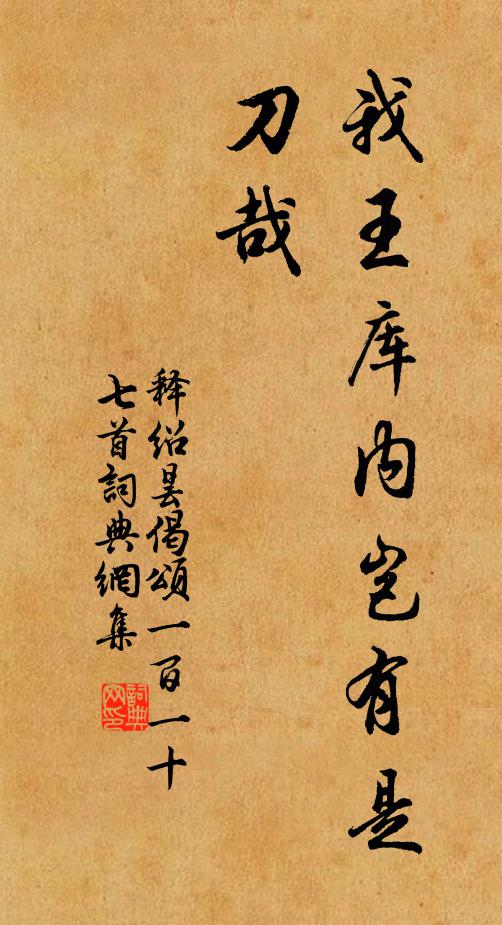 我王库内岂有是
刀哉
释绍昙偈頌一百一十
七首詞典網集
詞典
网印